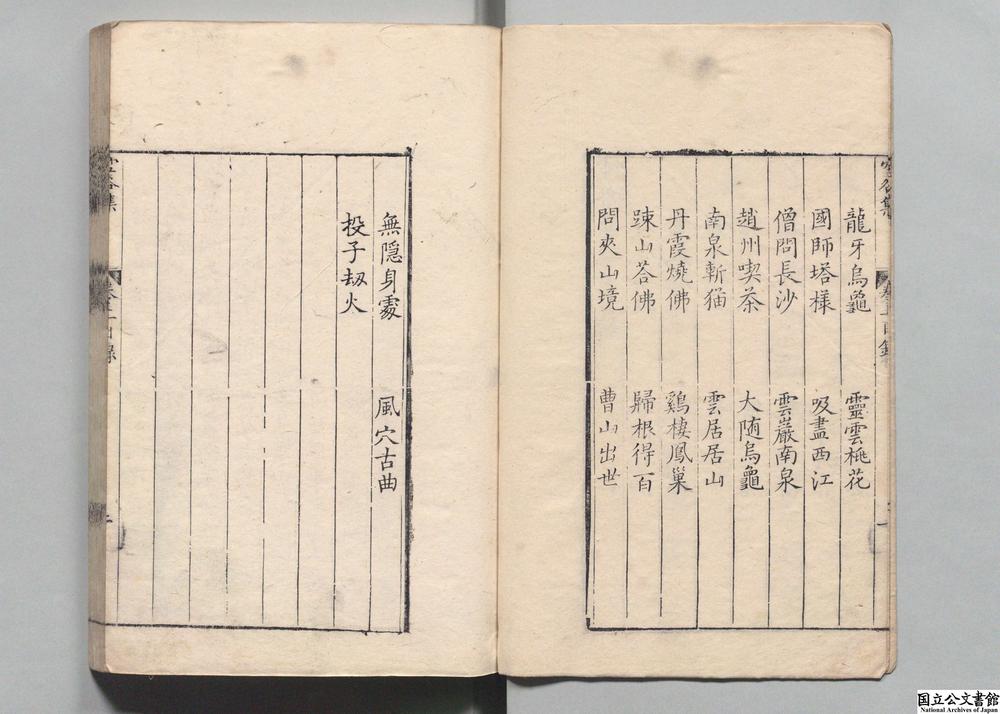 龍牙烏龜　靈雲桃花
國師塔樣　吸盡西江
僧問長沙　雲巖南泉
趙州喫茶　大随烏龜
南泉斬猫　雲居居山
丹霞燒佛　鷄棲鳳巢
踈山荅佛　歸根得旨
問夾山境　曹山出世
無隐身處　風穴古曲
投子刼火
国立公文書館
National Archives of Japan